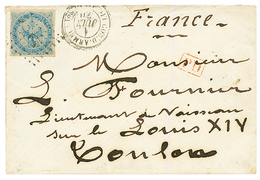 France
Monsieur
L. Fournier
Lieutenant de Vaisseau
sur le Louis XIV
Toulon